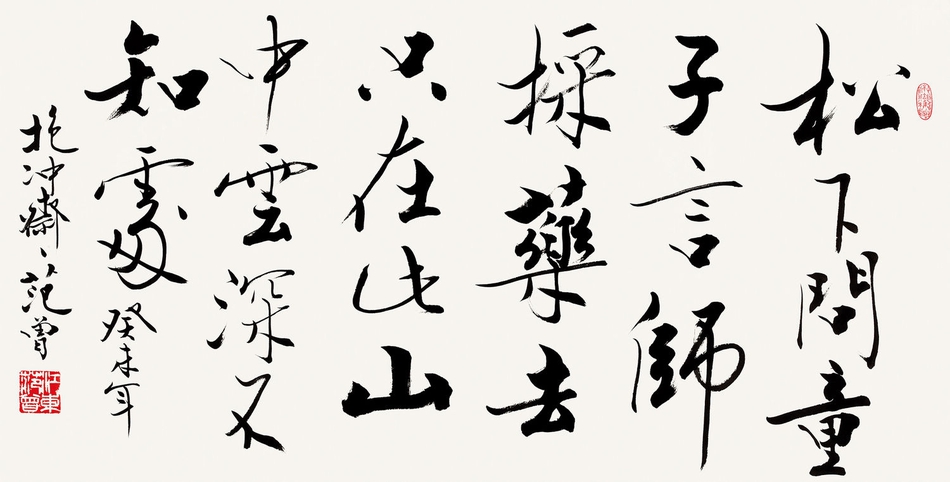 松下問童
子言師
採藥去
只在此山
中雲深不
知處癸未年
抱冲齋、范曾
江東范曾